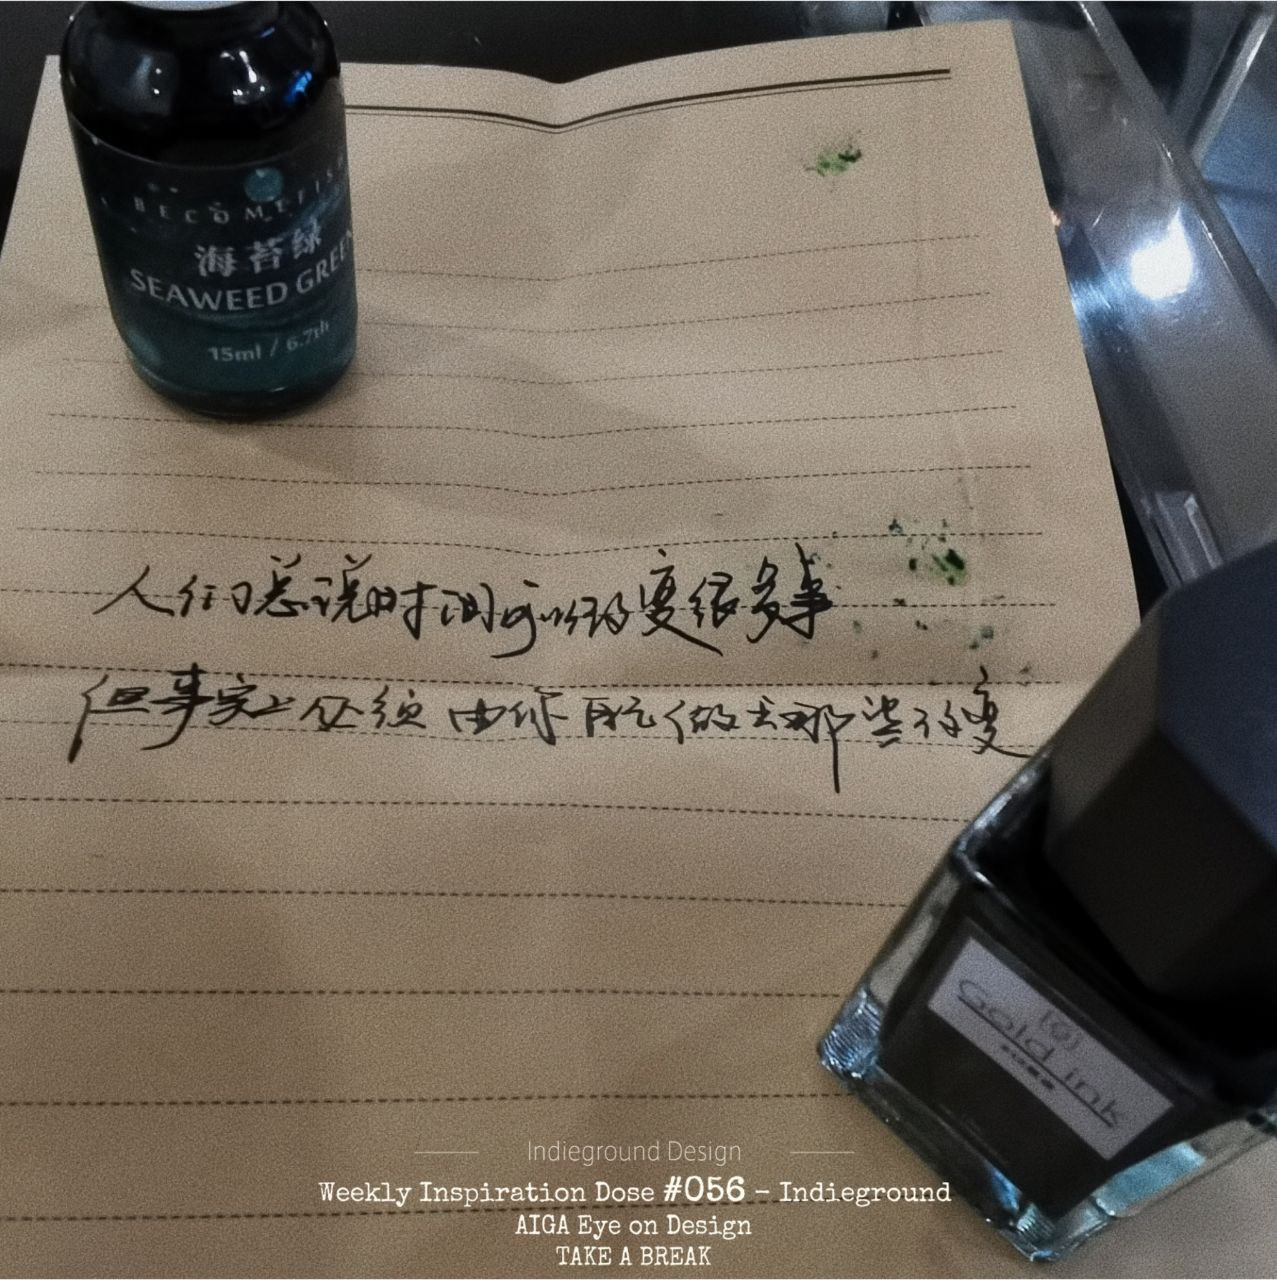 BECOMEFISH
海苔绿
SEAWEED GREEN
15ml / 6.7th
人们总说时间可以改变很多事
但事实上必须由你自己做出那些改变
Gold ink
Indieground Design
Weekly Inspiration Dose #056 – Indieground
AIGA Eye on Design
TAKE A BREAK